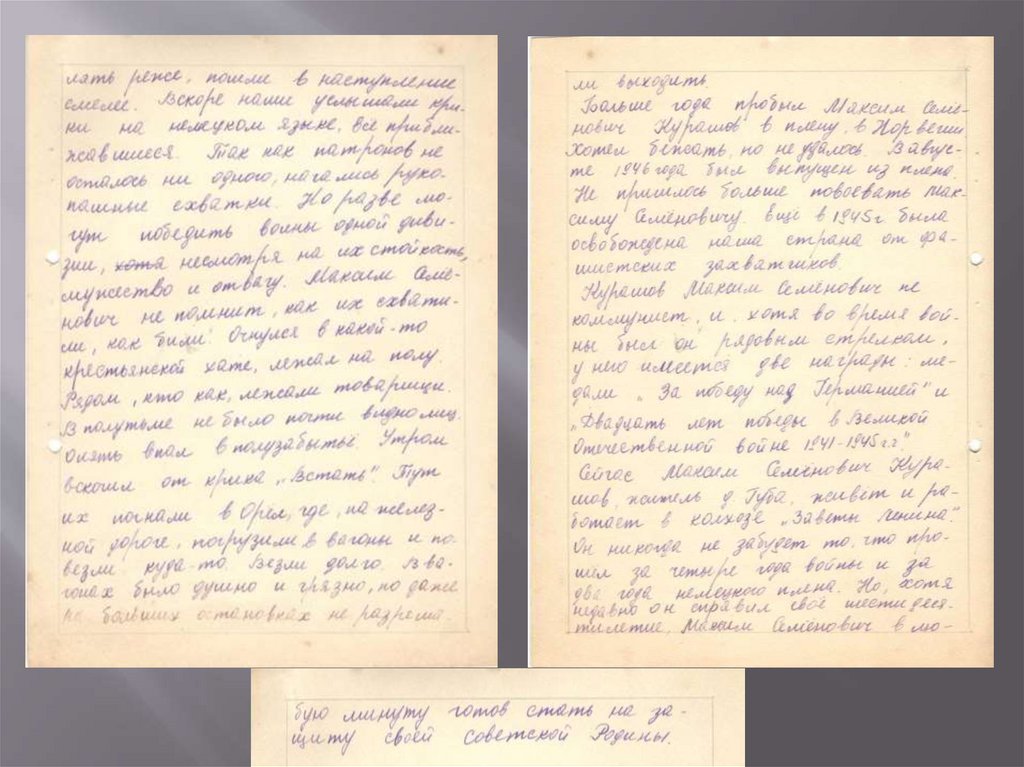 лять реже, пошли в наступление
смелее. Вскоре наши услышали кри-
ки на немецком языке, все прибли-
жавшиеся. Так как патронов не
осталось ни одного, начались руко-
пашные схватки. Но разве мо-
гут победить воины одной диви-
зии, хотя несмотря на их стойкость,
мужество и отвагу. Максим Семё-
нович не помнит, как их схвати-
ли, как били. Очнулся в какой-то
крестьянской хате, лежал на полу.
Рядом, кто как, лежали товарищи.
В полутьме не было почти видно лиц.
Опять впал в полузабытьё. Утром
вскочил от крика „Встать". Тут
их погнали в Орёл, где, на желез-
ной дороге, погрузили в вагоны и по-
везли куда-то. Везли долго. В ва-
гонах было душно и грязно, но даже
на больших остановках не разреша-
ли выходить.
Больше года пробыл Максим Семё-
нович Курашов в плену, в Норвегии
Хотел бежать, но не удалось. В авгус-
те 1946 года был выпущен из плена.
Не пришлось больше повоевать Мак-
симу Семёновичу. Ещё в 1945 г была
освобождена наша страна от фа-
шистских захватчиков.
Курашов Максим Семёнович не
коммунист, и, хотя во время вой-
ны был он рядовым стрелком,
у него имеется две награды: ме-
дали „За победу над Германией" и
„Двадцать лет победы в Великой
Отечественной войне 1941-1945 г.г".
Сейчас Максим Семёнович Кура-
шов, житель д. Губа, живёт и ра-
ботает в колхозе „Заветы Ленина".
Он никогда не забудет то, что про-
шёл за четыре года войны и за
два года немецкого плена. Но, хотя
недавно он справил своё шестидеся-
тилетие, Максим Семёнович в лю-
бую минуту готов стать на за-
щиту своей советской Родины.